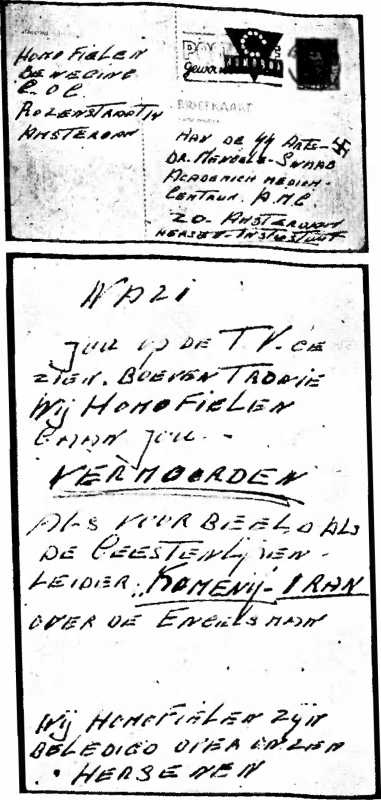 HOMO FIELEN
BEWEGING
C.O.C.
ROZENSTRAAT
AMSTERDAM
BRIEFKAART
AAN DE SS ARTS-
DR. MENGELE-SWAAB
ACADEMICH MEDICH-
CENTRUM. A.M.C
ZO- AMSTERDAM
HERSEN-INSTISTUUT
NAZI
JOU OP DE T.V. GE
ZIEN. BOEVEN TRONIE
WIJ HOMOFIELEN
GAAN JOU -
VERMOORDEN
ALS VOORBEELD ALS
DE
LEIDER, KOMENIJ-IRAN
OVER DE ENGELSMAN
WIJ HOMOFIELEN ZIJN
BELEDIGD OVER ONZEN
HERSENEN